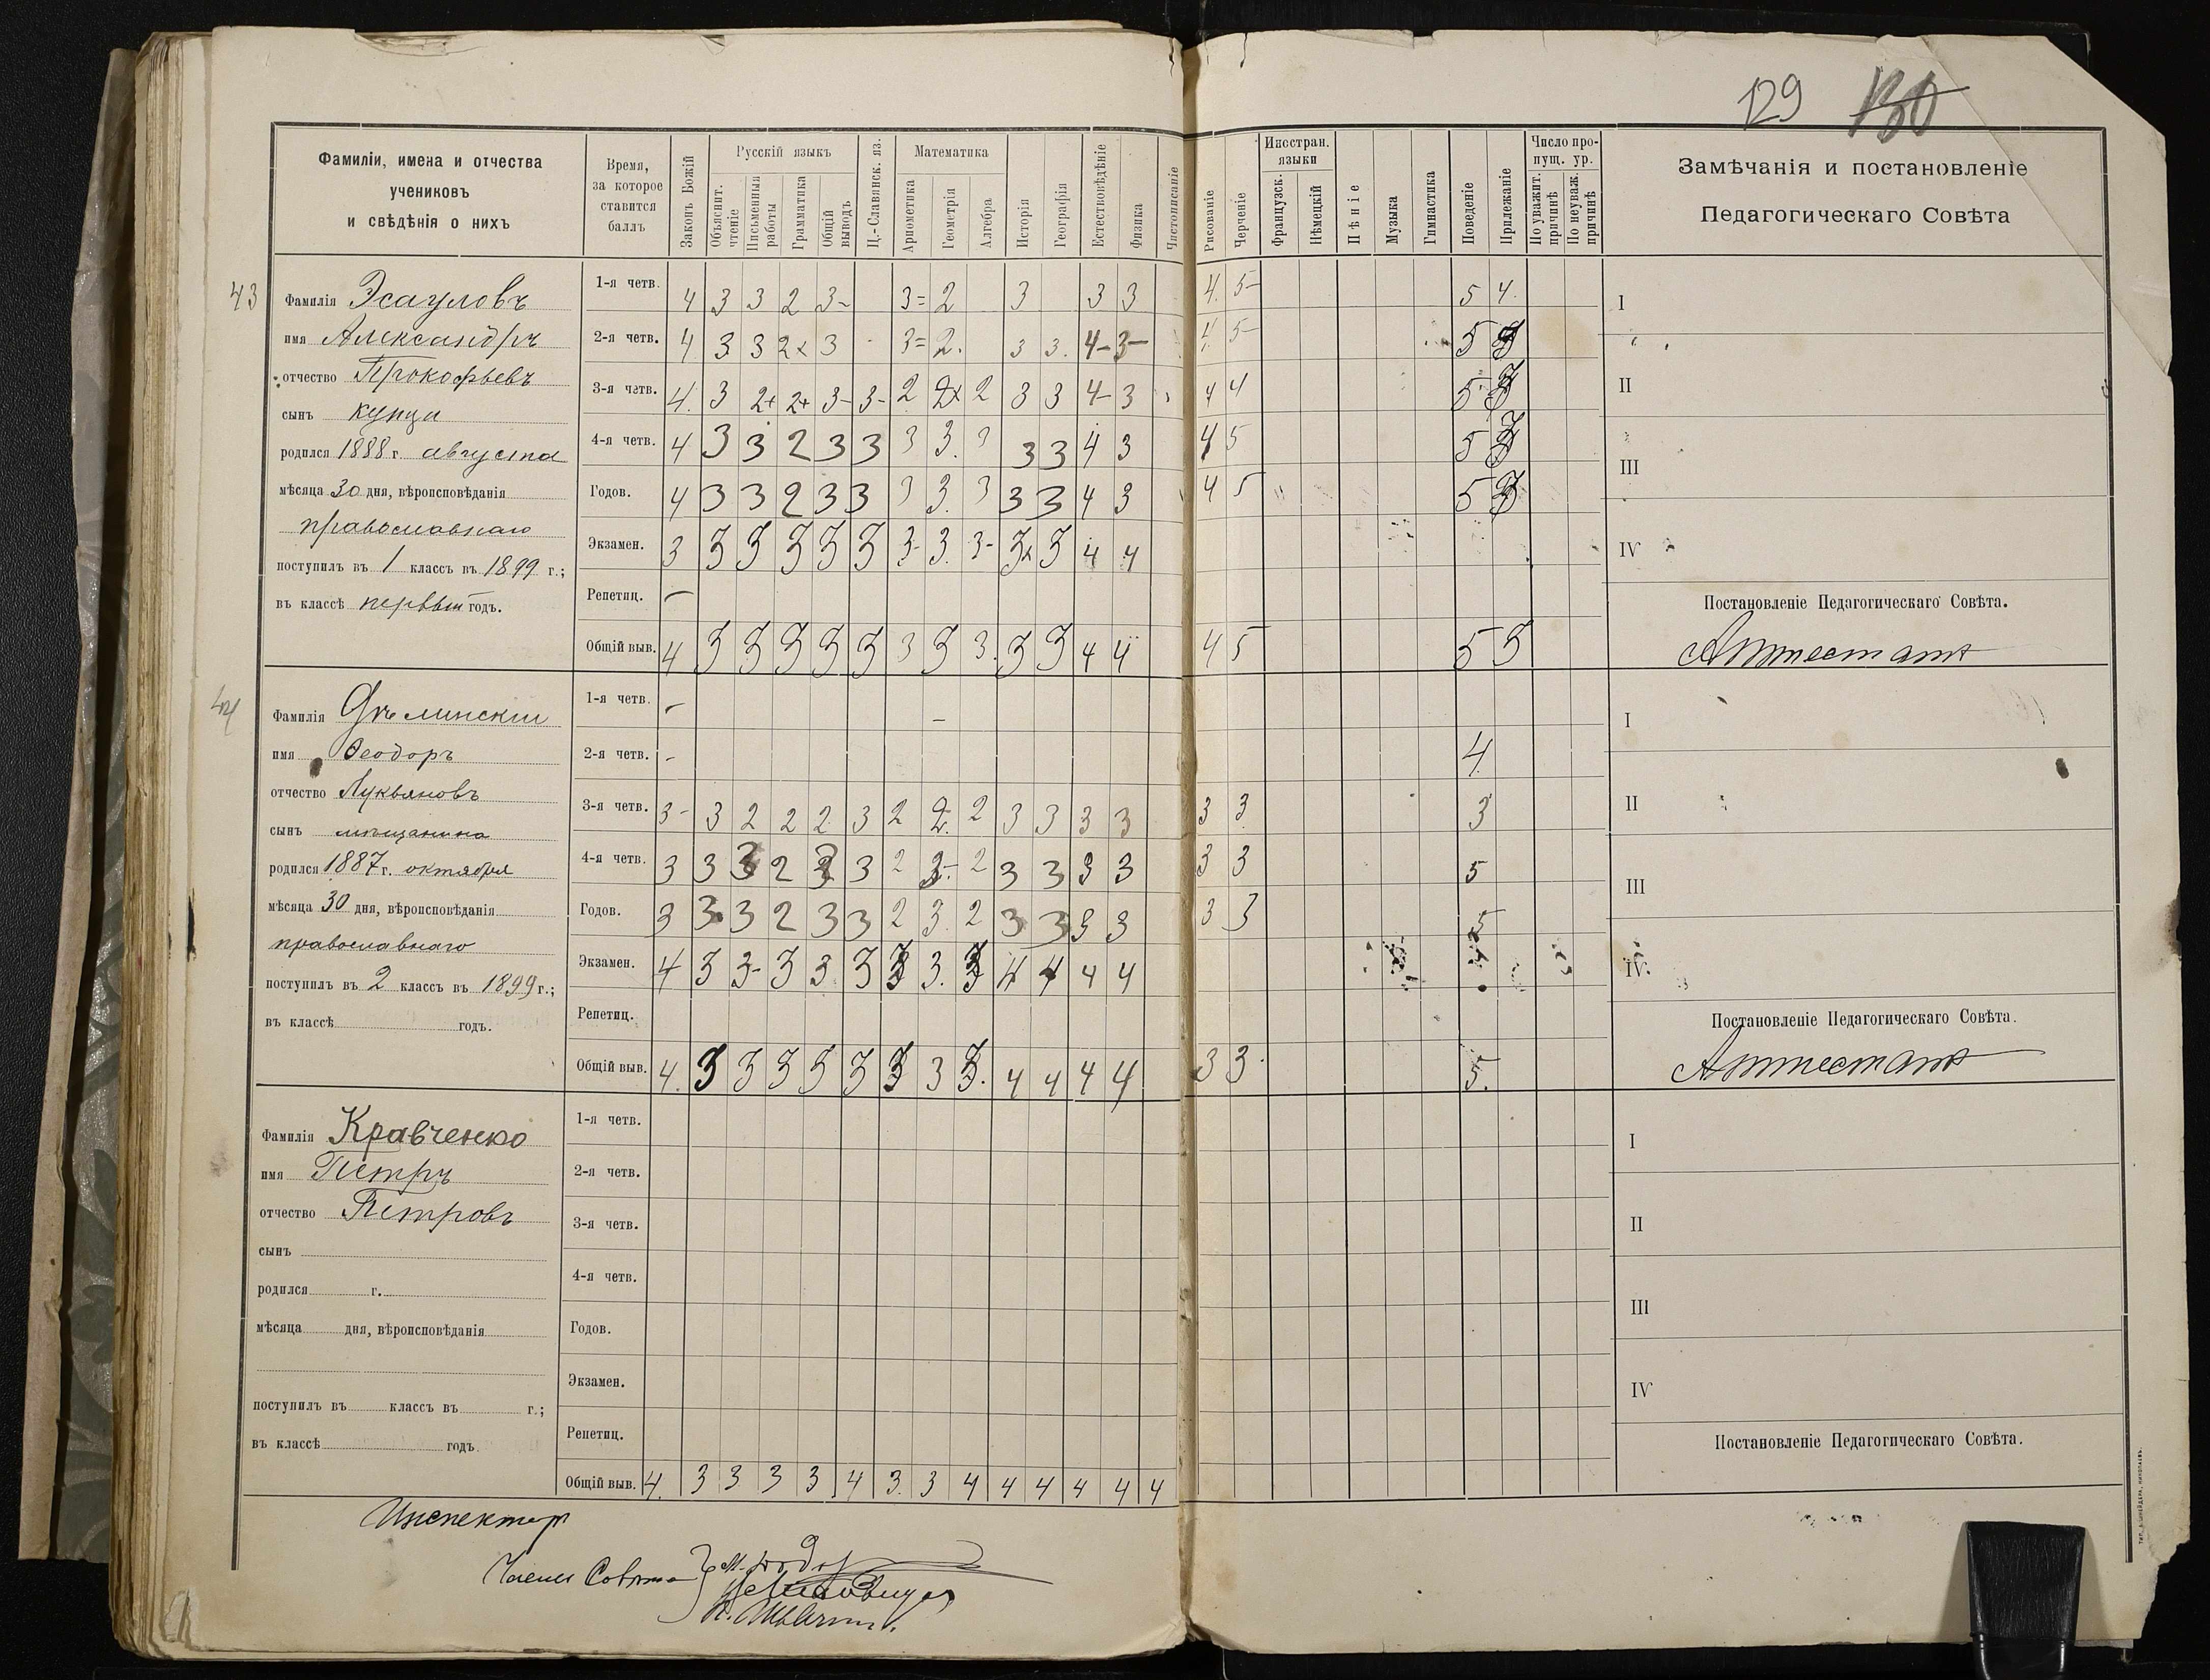 129 130
Фамиліи, имена и отчества
учениковъ
и свѣдѣнія о нихъ
Время,
за которое
ставится
баллъ
Законъ Божій
Русскій языкъ
Объяснит. чтеніе
Письменныя работы
Грамматика
Общій выводъ
Ц.-Славянск. яз.
Математика
Ариѳметика
Геометрія
Алгебра
Исторія
Географія
Естествовѣдѣніе
Физика
Чистописаніе
Рисованіе
Черченіе
Иностран. языки
Французск.
Нѣмецкій
Пѣніе
Музыка
Гимнастика
Поведеніе
Прилежаніе
Число пропущ. ур.
По уважит. причинѣ
По неуваж. причинѣ
Замѣчанія и постановленіе
Педагогическаго Совѣта
43
Фамилія Эсауловъ
имя Александръ
отчество Прокофьевъ
сынъ купца
родился 1888 г. августа
мѣсяца 30 дня, вѣроисповѣданія
православнаго
поступилъ въ 1 классъ въ 1899 г.;
въ классѣ первый годъ.
1-я четв. 4 3 3 2 3- 3= 2 3 3 3 4 5- 5 4
2-я четв. 4 3 3 2x 3 3= 2 3 3 4- 3- 4 5- 5
3-я четв. 4 3 2+ 2+ 3- 3- 2 2x 2 3 3 4- 3 4 4 5
4-я четв. 4 3 3 2 3 3 3 3 3 3 3 4 3 4 5 5
Годов. 4 3 3 2 3 3 3 3 3 3 3 4 3 4 5 5
Экзамен. 3 3 3 3 3 3 3- 3 3- 3x 3 4 4
Репетиц. —
Общій выв. 4 3 3 3 3 3 3 3 3 3 3 4 4 4 5 5 3
I
II
III
IV
Постановленіе Педагогическаго Совѣта.
Аттестатъ
44
Фамилія
имя Ѳеодоръ
отчество Лукьяновъ
сынъ мѣщанина
родился 1887 г. октября
мѣсяца 30 дня, вѣроисповѣданія
православнаго
поступилъ въ 2 классъ въ 1899 г.;
въ классѣ годъ.
1-я четв. — —
2-я четв. - 4
3-я четв. 3- 3 2 2 2 3 2 2 2 3 3 3 3 3 3 3
4-я четв. 3 3 3 2 3 3 2 3- 2 3 3 3 3 3 3 5
Годов. 3 3 3 2 3 3 2 3 2 3 3 3 3 3 3 5
Экзамен. 4 3 3- 3 3 3 3 3 3 4 4 4 4
Репетиц.
Общій выв. 4 3 3 3 3 3 3 3 3 4 4 4 4 3 3 5
I
II
III
IV
Постановленіе Педагогическаго Совѣта.
Аттестатъ
Фамилія Кравченко
имя Петръ
отчество Петровъ
сынъ
родился г.
мѣсяца дня, вѣроисповѣданія
поступилъ въ классъ въ г.;
въ классѣ годъ.
1-я четв.
2-я четв.
3-я четв.
4-я четв.
Годов.
Экзамен.
Репетиц.
Общій выв. 4 3 3 3 3 4 3 3 4 4 4 4 4 4
I
II
III
IV
Постановленіе Педагогическаго Совѣта.
Инспекторъ
Члены Совѣта